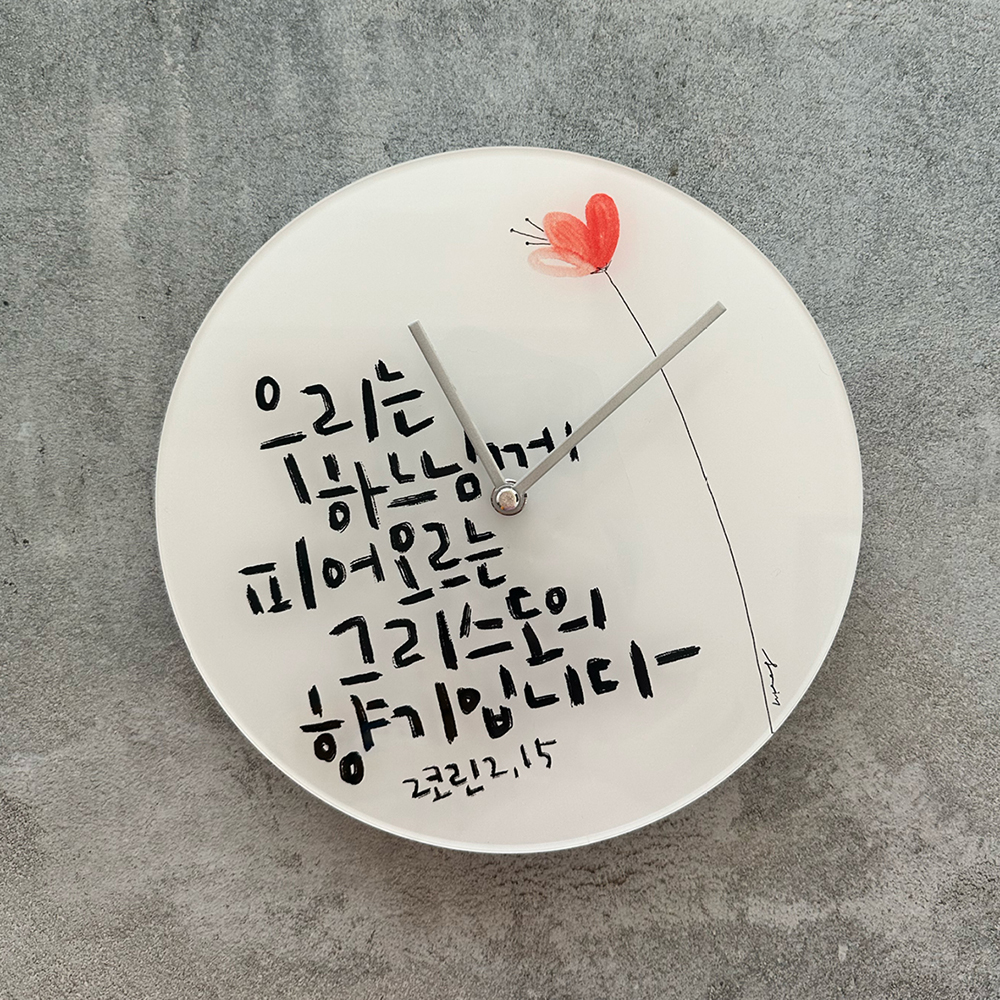 우리는
하느님께
피어오르는
그리스도의
향기입니다
2코린 2,15